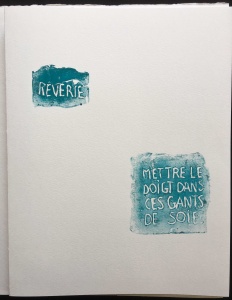 RÊVERIE
METTRE LE
DOIGT DANS
CES GANTS
DE SOIE